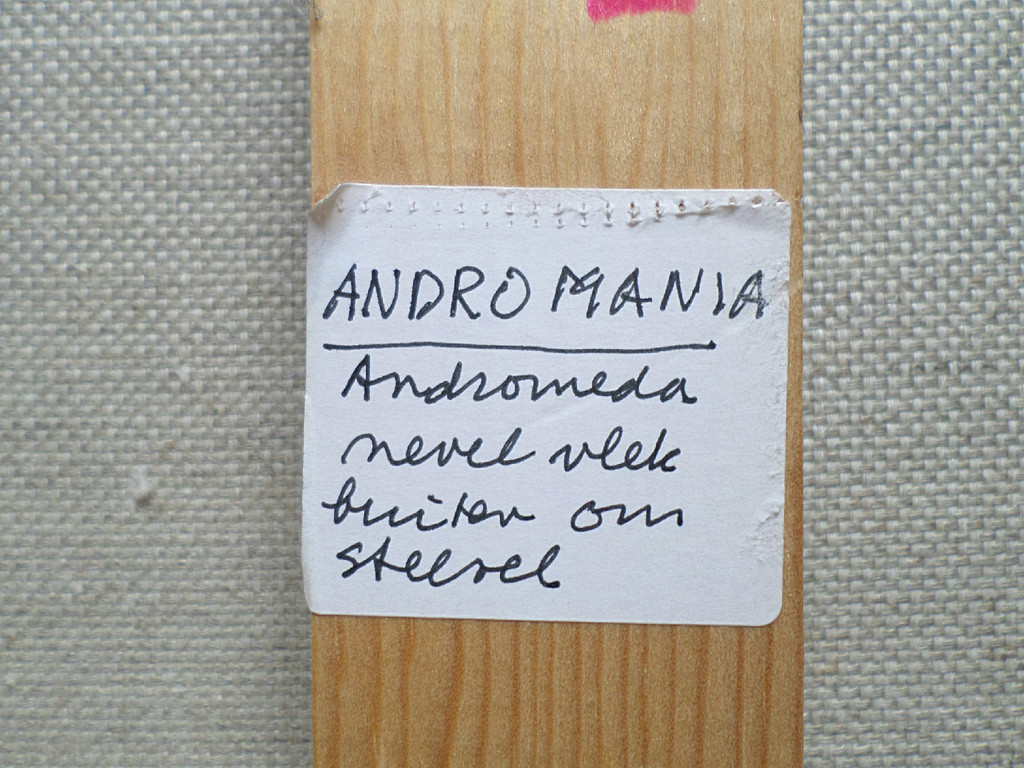 ANDROMANIA
Andromeda
nevel vlek
buiten om